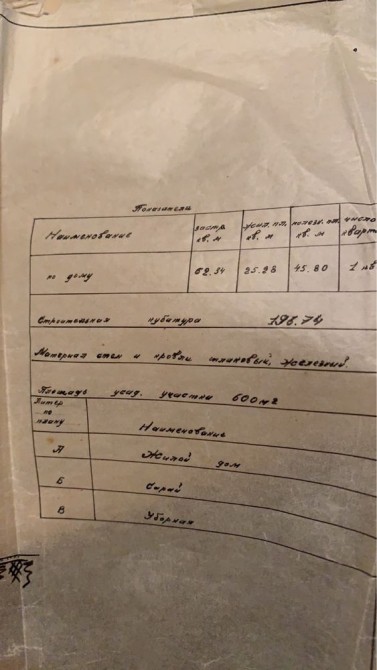 Показатели
Наименование застр. кв. м жил. пл. кв. м полезн. пл. кв. м число кварт
по дому 62.34 25.28 45.80 1 кв
Строительная кубатура 196.74
Материал стен и кровли, железный.
Площадь усад. участка 600 м2
Литер по плану Наименование
А Жилой дом
Б Сарай
В Уборная